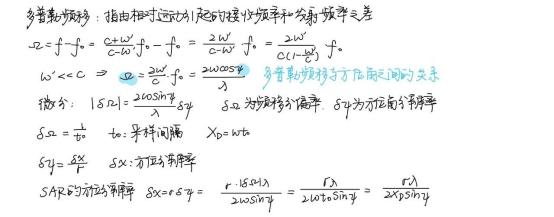 多普勒频移：指由相对运动引起的接收频率和发射频率之差
Ω = f - f₀ = (c+w')/(c-w') · f₀ - f₀ = 2w'/(c-w') f₀ = 2w'/(c(1-w'/c)) f₀
w' << c ⇒ Ω = 2w'/c · f₀ = 2wcosψ/λ 多普勒频移与方位角之间的关系
微分：|δΩ| = 2wsinψ/λ δψ δΩ为频移分辨率，δψ为方位角分辨率
δΩ = 1/t₀ t₀：采样间隔 X_D = wt₀
δψ = δx/r δx：方位分辨率
SAR的方位分辨率 δx = rδψ = r·|δΩ|λ/(2wsinψ) = rλ/(2wt₀sinψ) = rλ/(2X_Dsinψ)